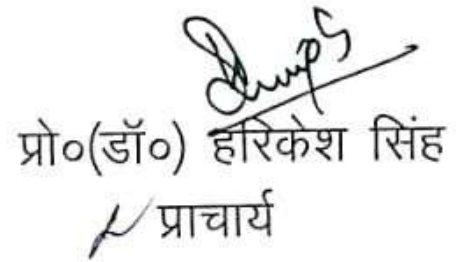 प्रो०(डॉ०) हरिकेश सिंह
प्राचार्य